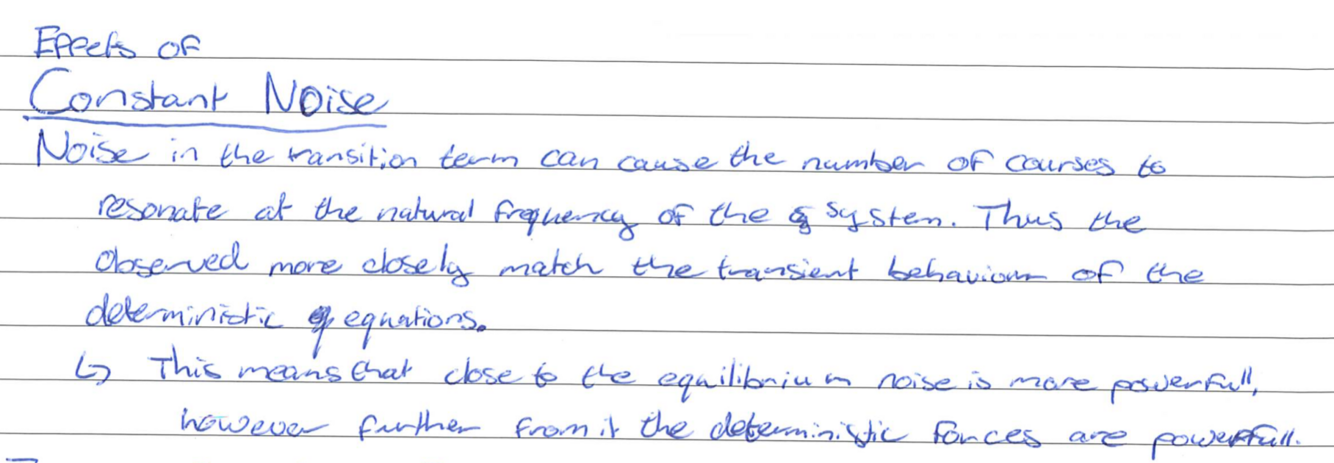 Effects of
Constant Noise
Noise in the transition term can cause the number of courses to
resonate at the natural frequency of the system. Thus the
observed more closely match the transient behaviour of the
deterministic equations.
↳ This means that close to the equilibrium noise is more powerfull,
however further from it the deterministic forces are powerfull.